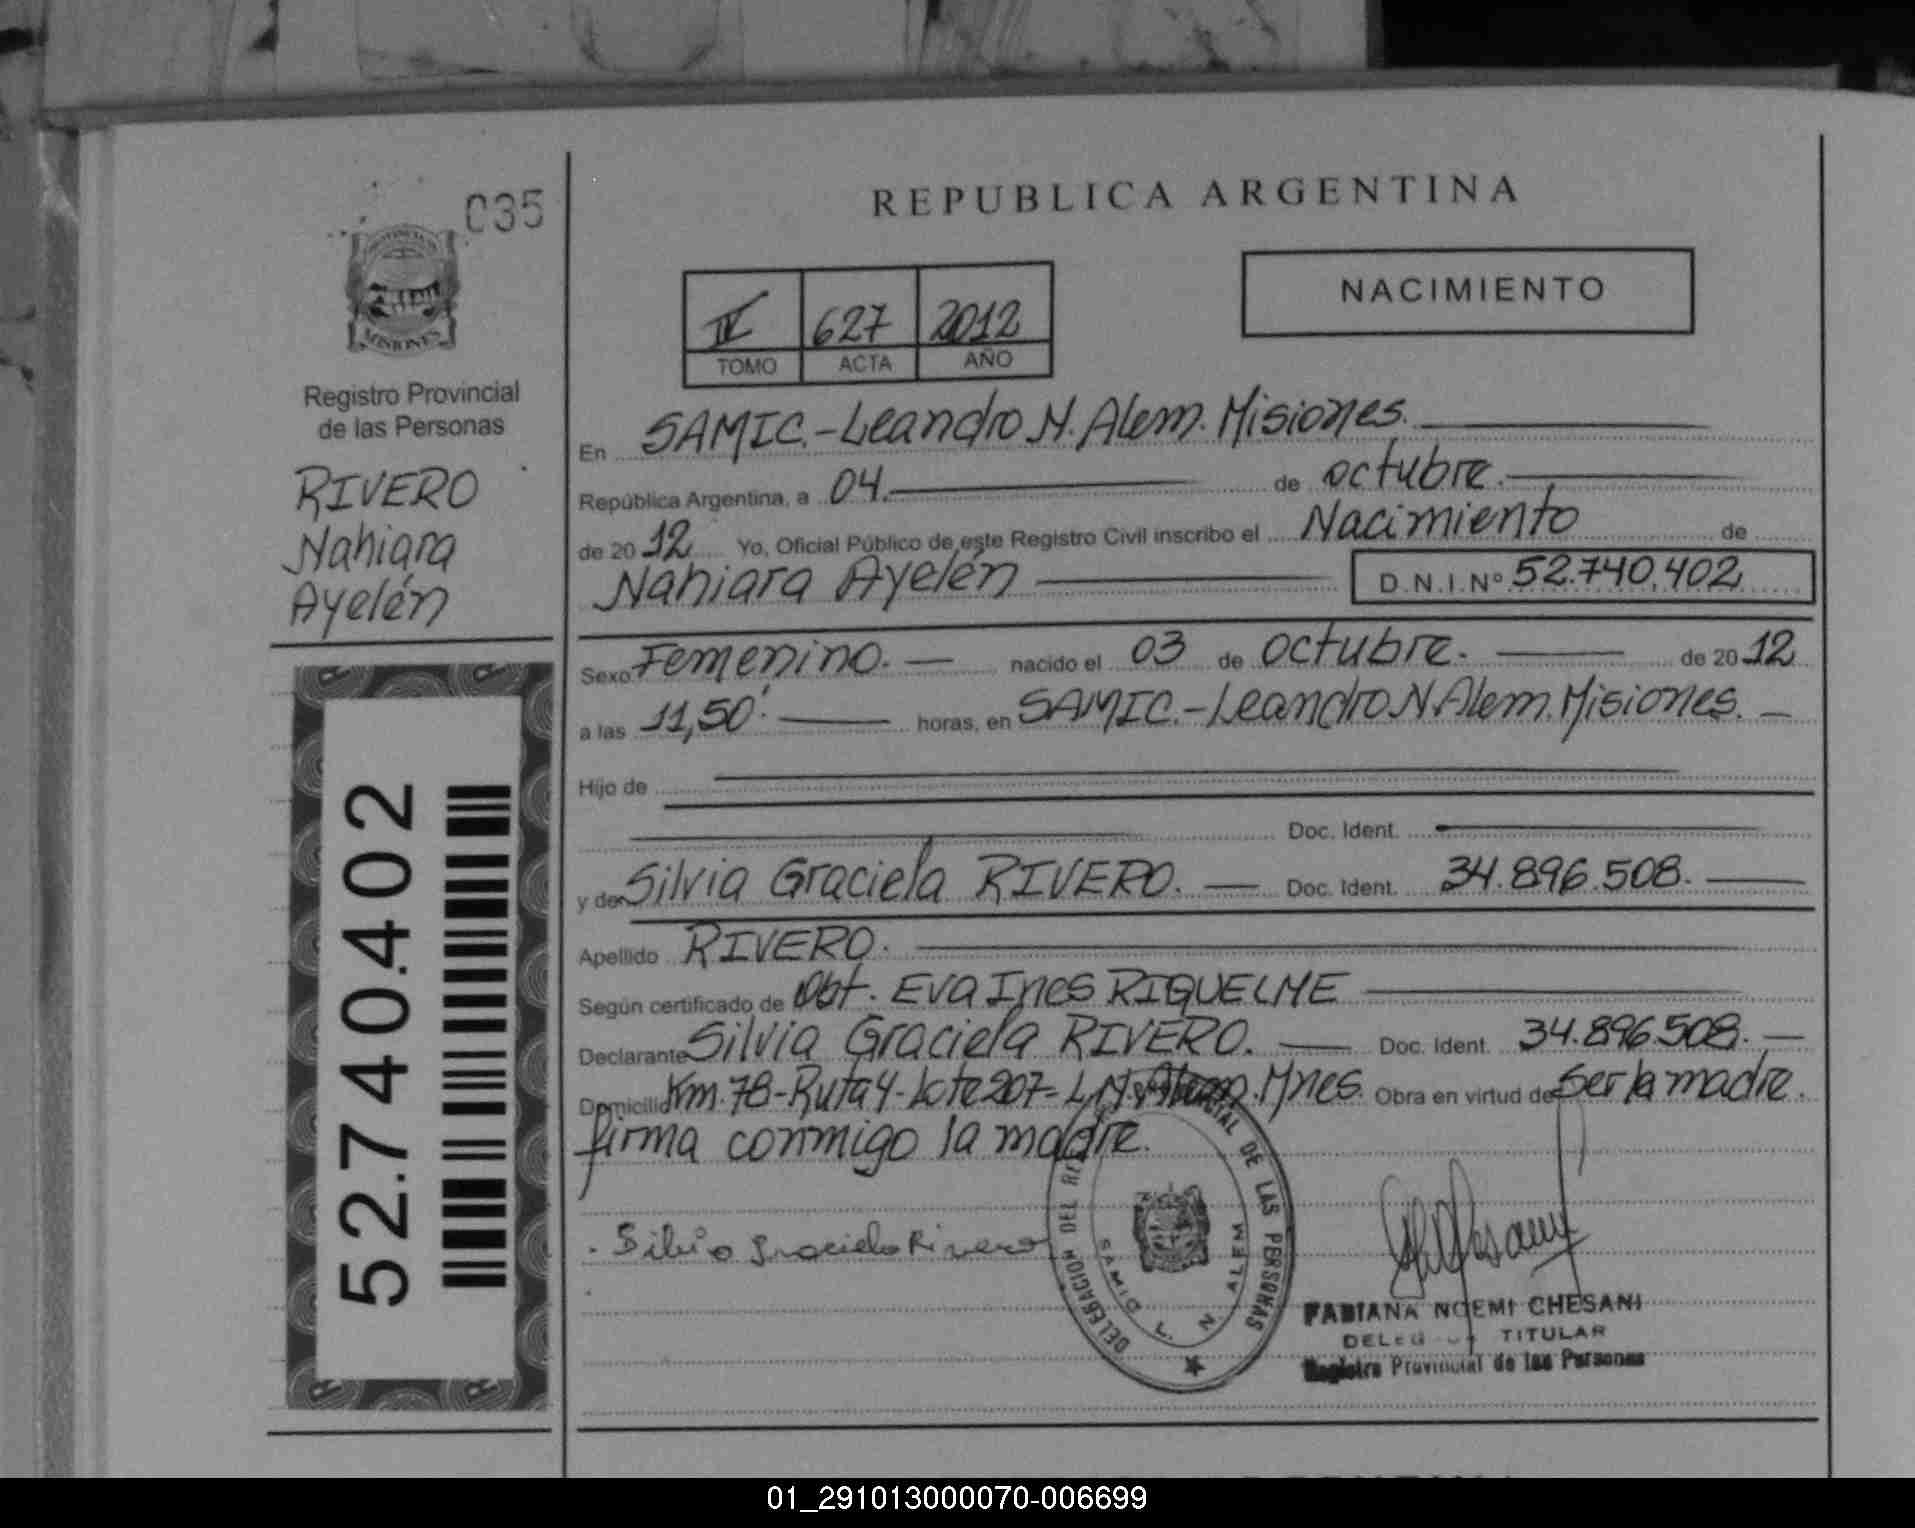 035
PROVINCIA DE
MISIONES
Registro Provincial
de las Personas
RIVERO
Nahiara
Ayelén
52.740.402
REPUBLICA ARGENTINA
IV 627 2012
TOMO ACTA AÑO
NACIMIENTO
En SAMIC.-Leandro N. Alem. Misiones.
República Argentina, a 04. de octubre.
de 2012 Yo, Oficial Público de este Registro Civil inscribo el Nacimiento de
Nahiara Ayelén D.N.I.Nº 52.740.402
Sexo Femenino. nacido el 03 de octubre. de 2012
a las 11,50'. horas, en SAMIC.-Leandro N Alem. Misiones.
Hijo de
Doc. Ident.
y de Silvia Graciela RIVERO. Doc. Ident. 34.896.508.
Apellido RIVERO.
Según certificado de Obt. Eva Ines RIQUELME
Declarante Silvia Graciela RIVERO. Doc. Ident. 34.896.508.
Domicilio Km.78-Ruta 4-Lote 207-L.N.Alem.Mnes. Obra en virtud de Ser la madre.
firma conmigo la madre.
Silvia Graciela Rivero
DELEGACION DEL REGISTRO PROVINCIAL DE LAS PERSONAS
SAMIC L. N. ALEM
FABIANA NOEMI CHESANI
DELEGADA TITULAR
Registro Provincial de las Personas
01_291013000070-006699